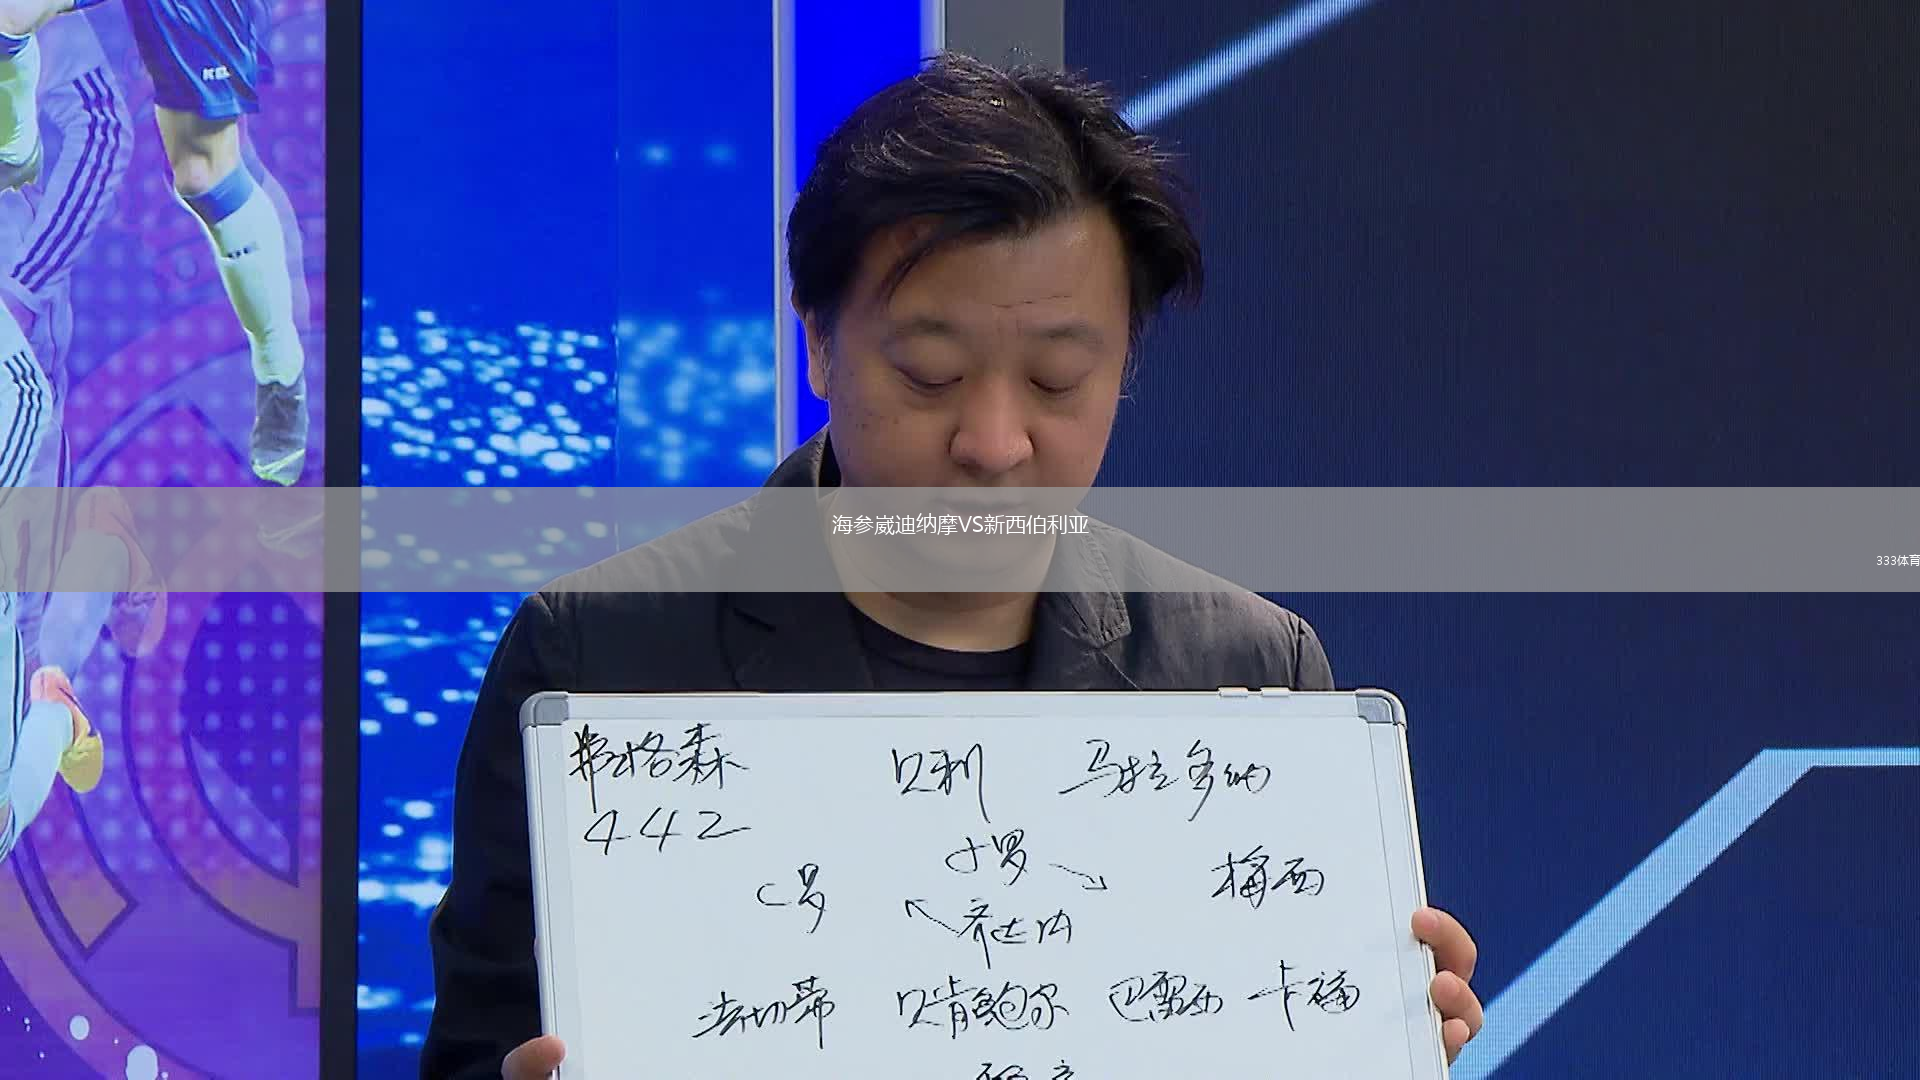 KEL
海参崴迪纳摩VS新西伯利亚
333体育
弗格森 贝利 马拉多纳
442
小罗
C罗 梅西
齐达内
法切蒂 贝肯鲍尔 巴雷西 卡福